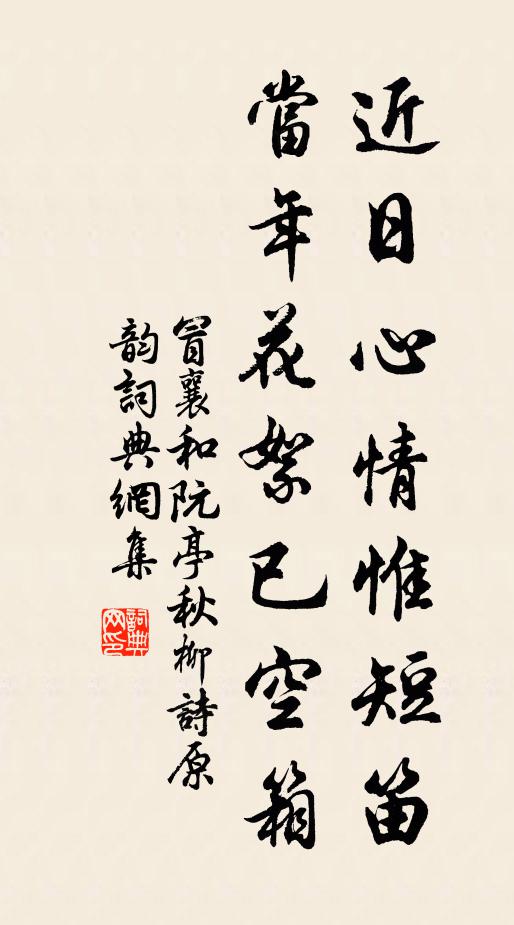 近日心情惟短笛
當年花絮已空箱
冒襄和阮亭秋柳詩原
韵詞典網集
詞典
网印